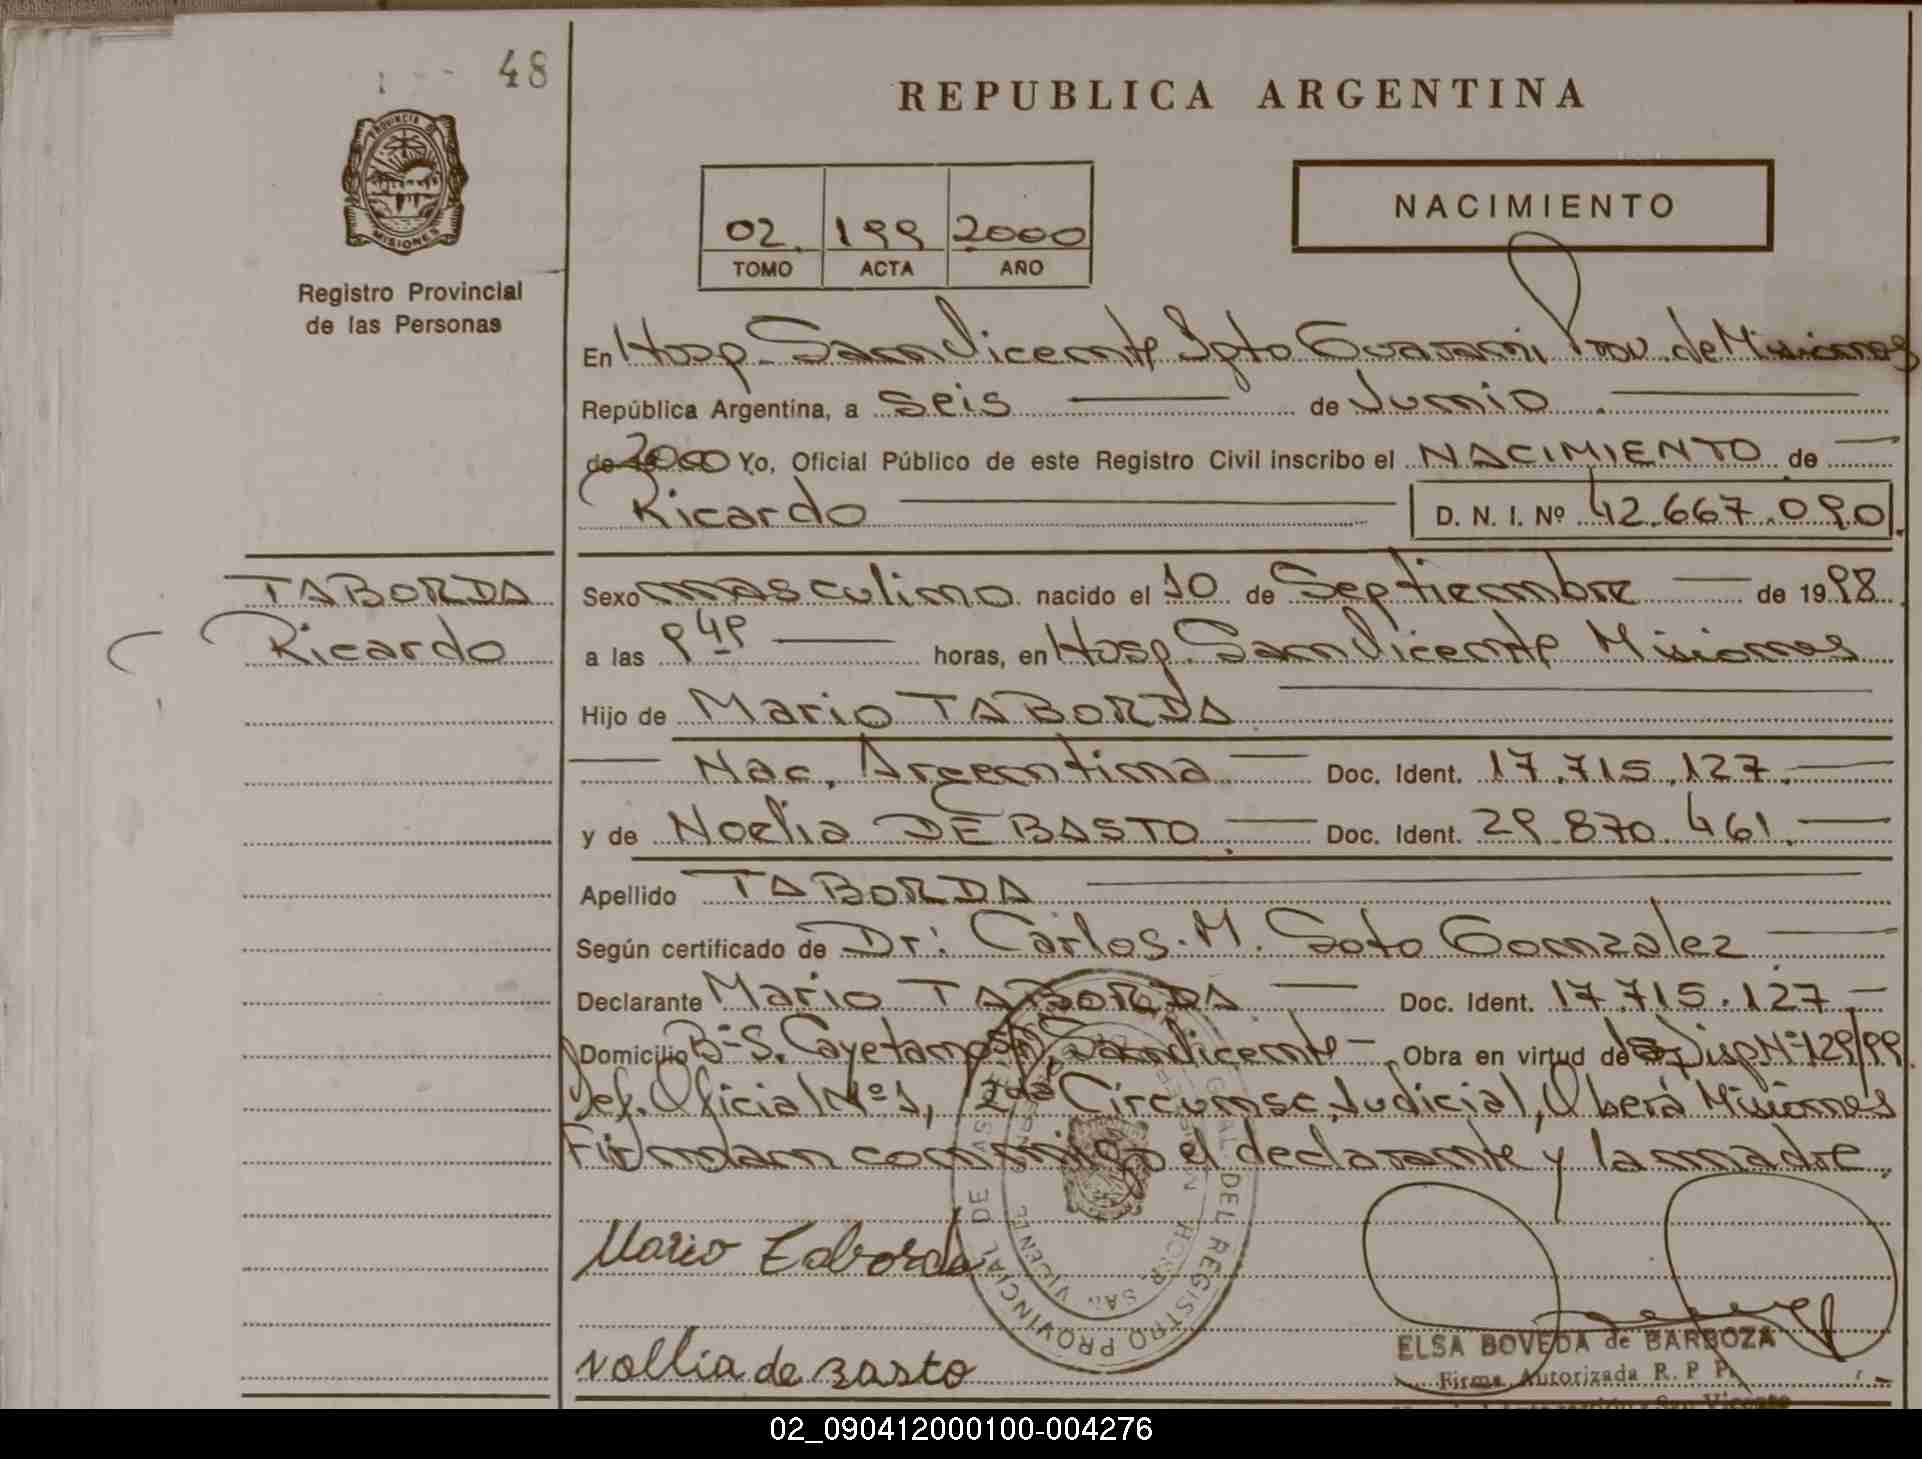 48
REPUBLICA ARGENTINA
PROVINCIA DE
MISIONES
Registro Provincial
de las Personas
02. 199 2000
TOMO ACTA AÑO
NACIMIENTO
En Hosp. San Vicente Dpto Guarani, Prov. de Misiones
República Argentina, a seis de Junio
de 2000 Yo, Oficial Público de este Registro Civil inscribo el NACIMIENTO de
Ricardo D. N. I. Nº 42.667.090
TABORDA
Ricardo
Sexo masculino nacido el 10 de Septiembre de 1998
a las 9 49 horas, en Hosp. San Vicente Misiones
Hijo de Mario TABORDA
Nac. Argentina Doc. Ident. 17.715.127
y de Noelia DE BASTO Doc. Ident. 29.870.461
Apellido TABORDA
Según certificado de Dr: Carlos. M. Soto Gonzalez
Declarante Mario TABORDA Doc. Ident. 17.715.127
Domicilio Bº S. Cayetano San Vicente Obra en virtud de Disp Nº 129/99
Def. Oficial Nº 1, 2da Circunsc. Judicial, Oberá Misiones
Firman conmigo el declarante y la madre.
Mario Taborda
nollia de basto
PROVINCIAL DEL REGISTRO PROVINCIAL DE
HOSP. SAN VICENTE
ELSA BOVEDA de BARBOZA
Firma Autorizada R. P. P.
San Vicente
02_090412000100-004276